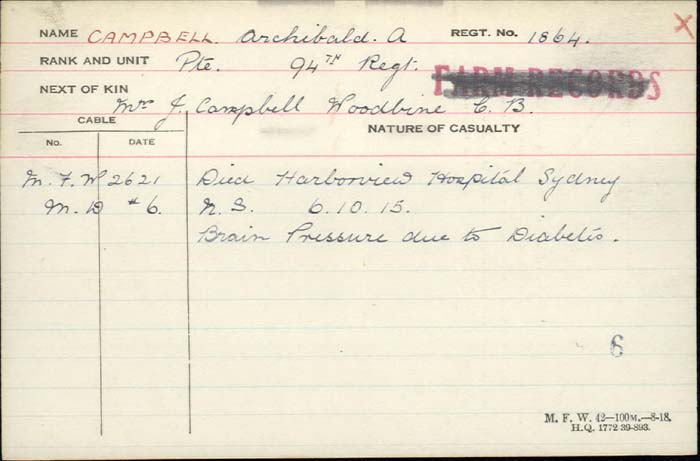 NAME CAMPBELL. Archibald. A REGT. No. 1864. X
RANK AND UNIT Pte. 94TH Regt.
FARM RECORDS
NEXT OF KIN Mrs J. Campbell Woodbine C. B.
CABLE NATURE OF CASUALTY
No. DATE
M. F. W 2621 Died Harborview Hospital Sydney
M. D #6. N. S. 6. 10. 15.
Brain Pressure due to Diabetis.
6
M. F. W. 42—100M.—8-18.
H.Q. 1772-39-893.